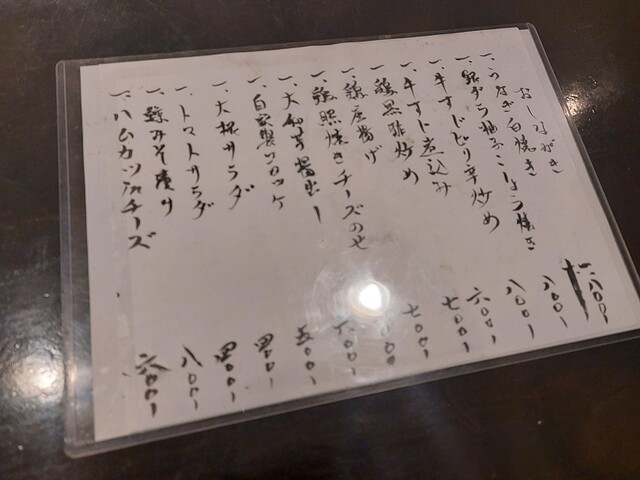 おしながき
一、うなぎ白焼き
一、銀ダラ柚子こしょう焼き 八〇〇
一、牛すじピリ辛炒め 八〇〇
一、牛すじ煮込み 六〇〇
一、鶏黒酢炒め 七〇〇
一、鶏唐揚げ 七〇〇
一、鶏照焼きチーズのせ
一、大和芋揚出し 六〇〇
一、自家製コロッケ 五〇〇
一、大根サラダ 四〇〇
一、トマトサラダ 四〇〇
一、みそ漬け 八〇〇
一、ハムカツinチーズ 六〇〇